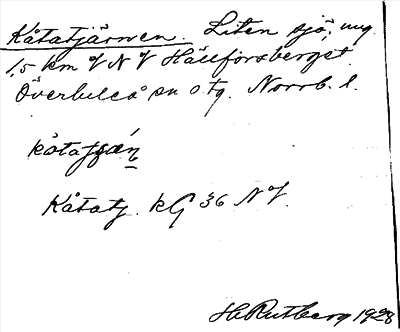 Kåtatjärnen. Liten sjö, ung.
1,5 km NV Hällforsberget
Överluleå sn o tg. Norrb. l.
kåta
Kåtatj. kG 36 NV.
H. Rutberg 1928